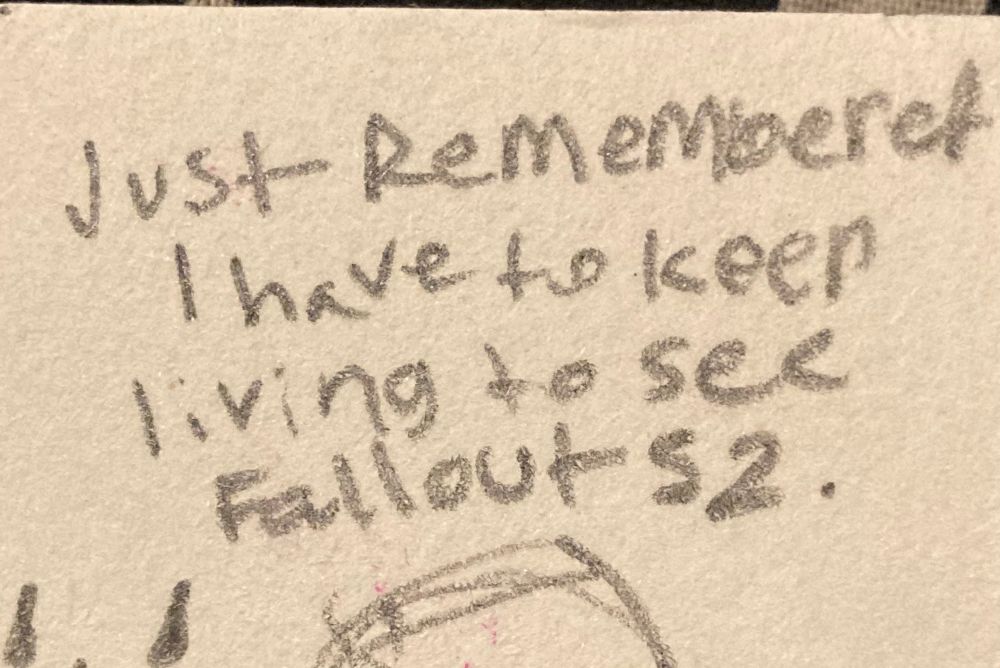 Just Remembered
I have to keep
living to see
Fallout S2.